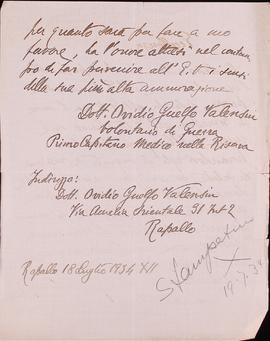 per quanto sarà per fare a mio
favore, ha l'onore altresì nel contem
po di far pervenire all'E. V. i sensi
della sua più alta ammirazione
Dott. Ovidio Guelfo Valensin
volontario di Guerra
Primo Capitano Medico nella Riserva
Indirizzo:
Dott. Ovidio Guelfo Valensin
Via Aurelia Orientale 91 Int 2
Rapallo
Rapallo 18 luglio 1934 XII
X
19.7.34